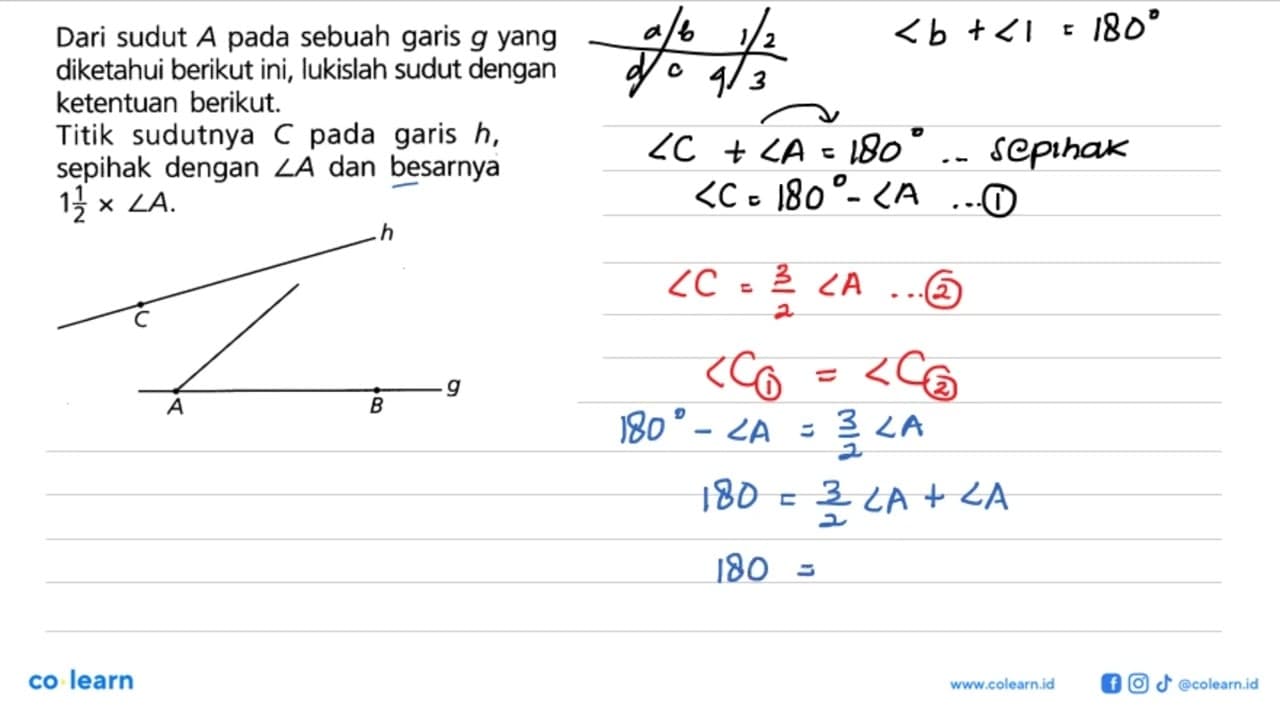 Dari sudut A pada sebuah garis g yang
diketahui berikut ini, lukislah sudut dengan
ketentuan berikut.
Titik sudutnya C pada garis h,
sepihak dengan ∠A dan besarnya
1 1/2 × ∠A.
h
C
A
B
g
a b 1 2
d c 4 3
<b + <1 = 180°
∠C + ∠A = 180° .. sepihak
<C = 180° - <A ...①
∠C = 3/2 ∠A ...②
<C① = <C②
180° - ∠A = 3/2 ∠A
180 = 3/2 ∠A + ∠A
180 =
co learn
www.colearn.id
@colearn.id